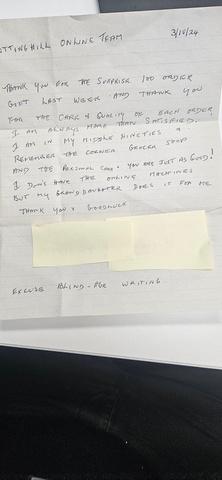 OTTINGHILL ONLINE TEAM 3/10/24
THANK YOU FOR THE SURPRISE 100 ORDER
GIFT LAST WEEK AND THANK YOU
FOR THE CARE & QUALITY OF EACH ORDER
I AM ALWAYS MORE THAN SATISFIED.
I AM IN MY MIDDLE NINETIES &
REMEMBER THE CORNER GROCER SHOP
AND THE PERSONAL CARE. YOU ARE JUST AS GOOD!
I DON'T HAVE THE ONLINE MACHINES
BUT MY GRANDDAUGHTER DOES IT FOR ME
THANK YOU & GOODLUCK
EXCUSE BLIND-AGE WRITING